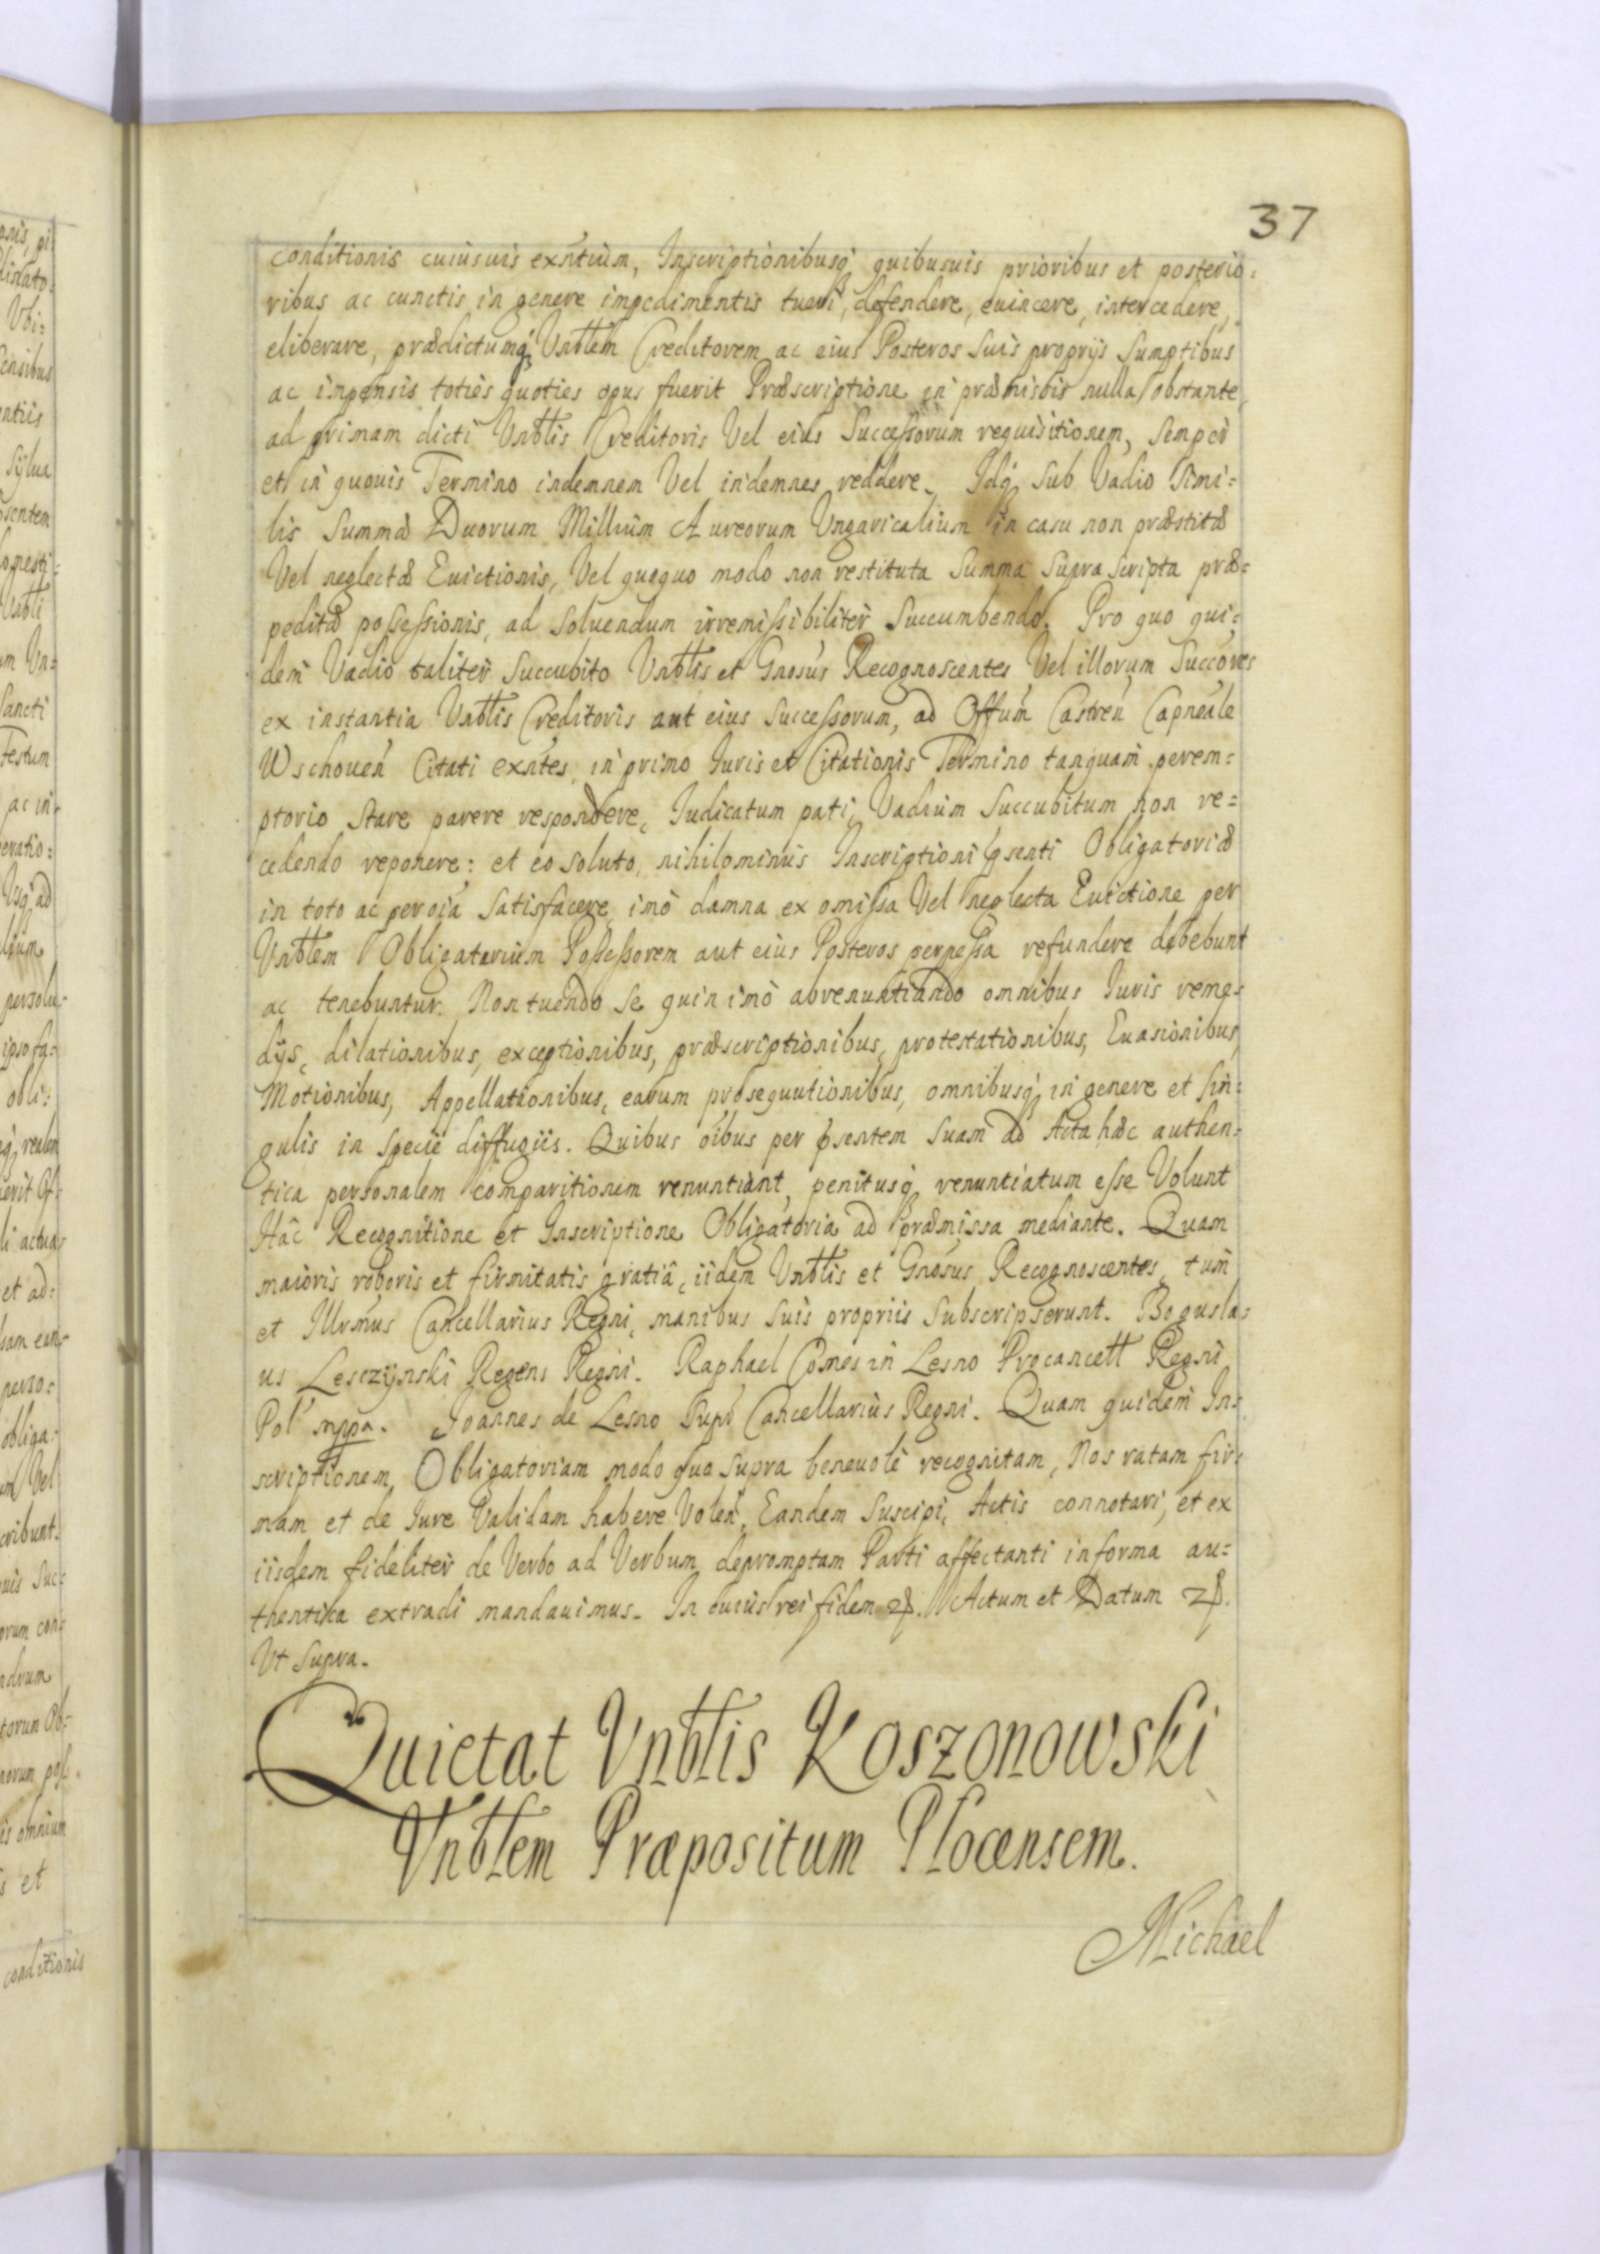 37
conditionis cuiusuis exn̄tium, Inscriptionibusq́ quibusuis prioribus et posterio=
ribus ac cunctis in genere impedimentis tueri, defendere, euincere, intercedere,
eliberare, prædictumq́ Vnƀlem Creditorem ac eius Posteros suis proprijs sumptibus
ac inpensis toties quoties opus fuerit Præscriptione in præmissis nulla obstante,
ad primam dicti Vnƀlis Creditoris Vel eius Successorum requisitionem, semper
et in quouis Termino indemnem Vel indemnes reddere. Idq́ sub Vadio simi=
lis summæ Duorum Millium Aureorum Vngaricalium in casu non præstitæ
Vel neglectæ Euictionis, Vel quoquo modo non restituta Summa suprascripta præ=
peditæ possessionis, ad soluendum irremissibiliter succumbendo. Pro quo qui=
dem Vadio taliter succubito Vnƀlis et Gnosus Recognoscentes Vel illorum Succores
ex instantia Vnƀlis Creditoris aut eius successorum, ad Offum Castren̄ Capneale
Wschouen̄ Citati exn̄tes, in primo Iuris et Citationis Termino tanquam perem=
ptorio stare parere respondere, Iudicatum pati, Vadium succubitum non re=
cedendo reponere: et eo soluto, nihilominus Inscriptioni p̄senti Obligatoriæ
in toto ac per oia satisfacere, imò damna ex omissa Vel neglecta Euictione per
Vnƀlem Obligatarium Possessorem aut eius Posteros perpessa refundere debebunt
ac tenebuntur. Non tuendo se quin imò abrenuntiando omnibus Iuris reme=
dijs, dilationibus, exceptionibus, præscriptionibus, protestationibus, Euasionibus,
Motionibus, Appellationibus, earum prosequutionibus, omnibusq́ in genere et sin=
gulis in specie diffugiis. Quibus oibus per p̄sentem suam ad Acta hæc authen=
tica personalem comparitionem renuntiant, penitusq́ renuntiatum esse Volunt
Hâc Recognitione et Inscriptione Obligatoria ad præmissa mediante. Quam
maioris roboris et firmitatis gratiâ, iidem Vnƀlis et Gnosus Recognoscentes, tum
et Illrmus Cancellarius Regni, manibus suis propriis subscripserunt. Bogusla=
us Lesczÿnski Regens Regni. Raphael Comes in Lesno Procancell Regni
Pol mppa. Joannes de Lesno Supr Cancellarius Regni. Quam quidem In=
scriptionem Obligatoriam modo quo supra beneuolè recognitam, Nos ratam fir=
mam et de Iure Validam habere Volen̄, Eandem suscipi, Actis connotari, et ex
iisdem fideliter de Verbo ad Verbum depromptam Parti affectanti in forma au=
thentica extradi mandauimus. In cuius rei fidem Actum et Datum
Vt supra.
Quietat Vnƀlis Koszonowski
Vnƀlem Præpositum Plocensem.
Michael